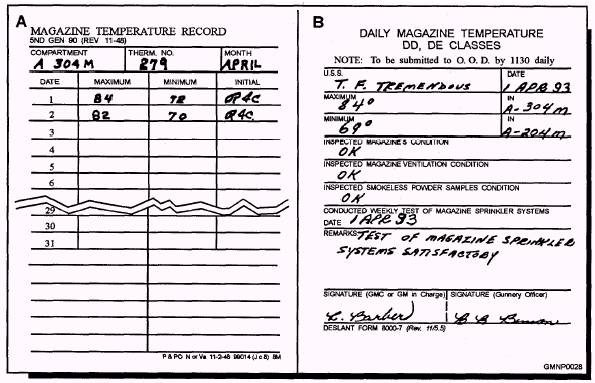 A
MAGAZINE TEMPERATURE RECORD
5ND GEN 90 (REV 11-48)
COMPARTMENT THERM. NO. MONTH
A 304 M 279 APRIL
DATE MAXIMUM MINIMUM INITIAL
1 84 72
2 82 70
3
4
5
6
29
30
31
P & PO N or Va 11-2-48 99014 (J c 8) 8M
B
DAILY MAGAZINE TEMPERATURE
DD, DE CLASSES
NOTE: To be submitted to O. O. D. by 1130 daily
U.S.S. DATE
T. F. TREMENDOUS 1 APR 93
MAXIMUM IN
84° A-304M
MINIMUM IN
69° A-204M
INSPECTED MAGAZINE'S CONDITION
OK
INSPECTED MAGAZINE VENTILATION CONDITION
OK
INSPECTED SMOKELESS POWDER SAMPLES CONDITION
OK
CONDUCTED WEEKLY TEST OF MAGAZINE SPRINKLER SYSTEMS
DATE 1 APR 93
REMARKS TEST OF MAGAZINE SPRINKLER
SYSTEMS SATISFACTORY
SIGNATURE (GMC or GM in Charge) SIGNATURE (Gunnery Officer)
L. Barber
DESLANT FORM 8000-7 (Rev. 11/5.5)
GMNP0028